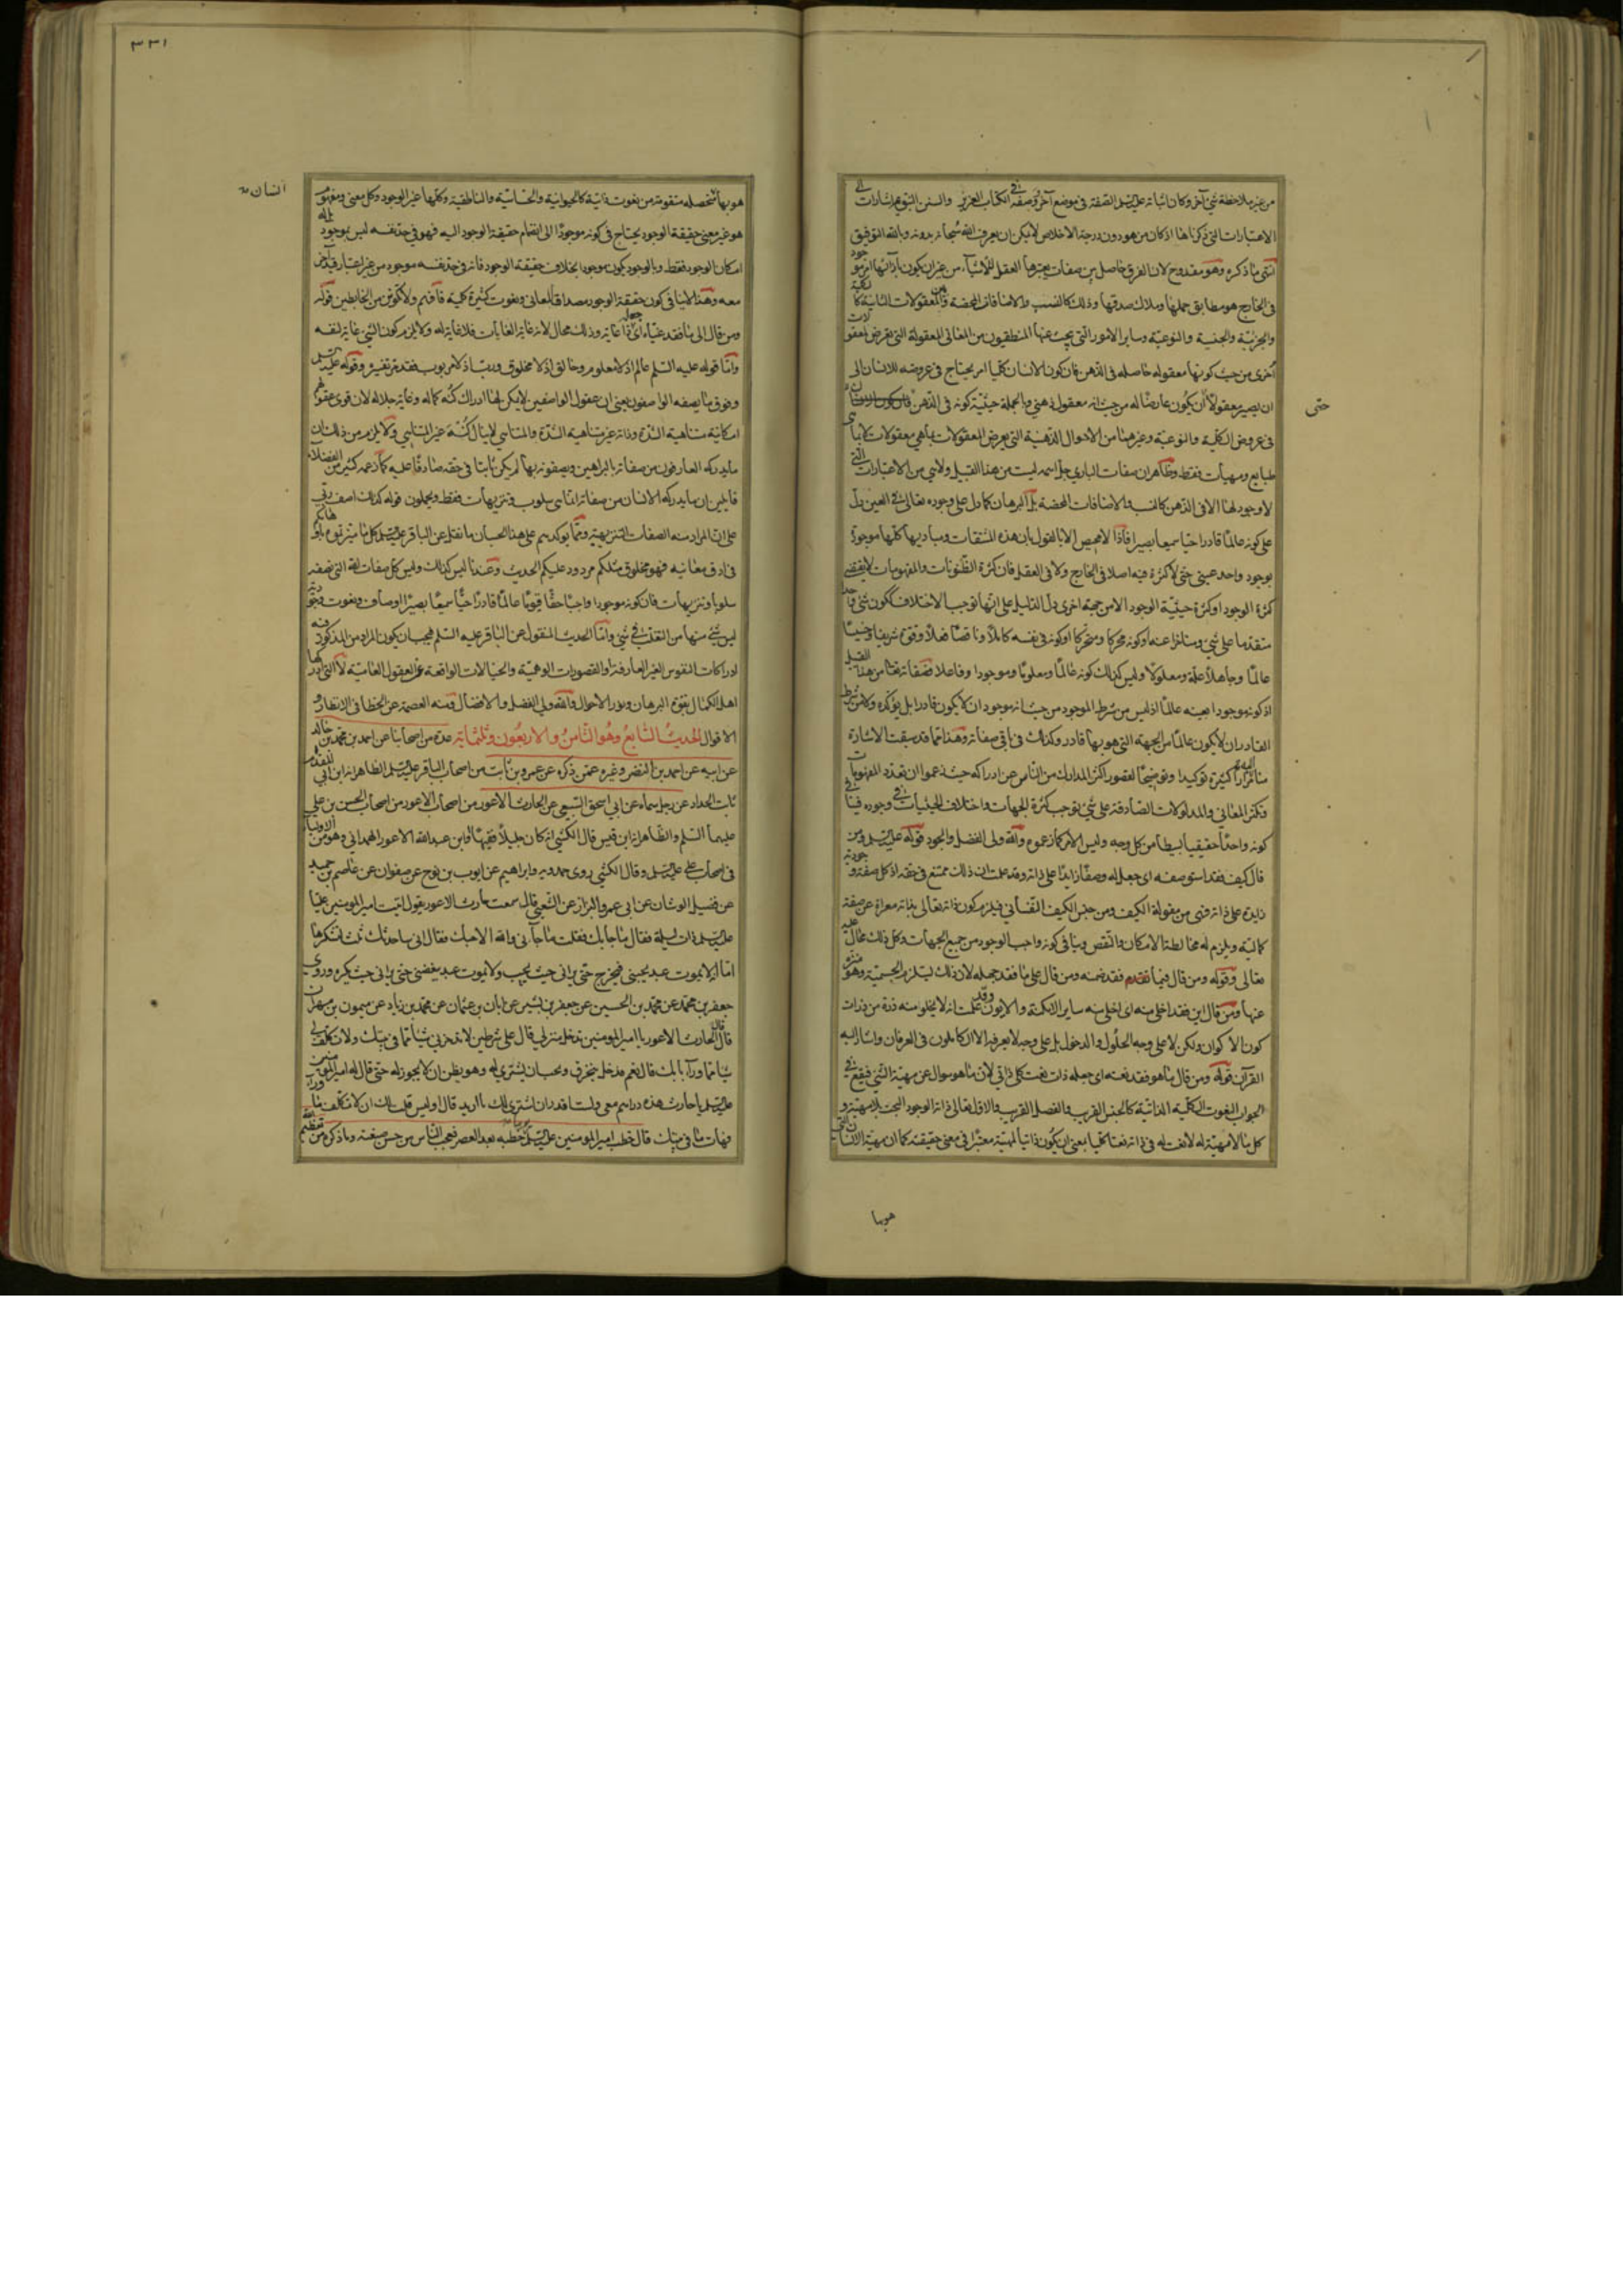 من غير ملاحظة شيء آخر وكان اثباته عليه السلم الصفة في موضع آخر وصفه في الكتاب العزيز والسنن النبوية اشارات الى
الاعتبارات التي ذكرناها اذ كان من هو دون درجة الاخلاص لا يمكن ان يعرف الله سبحانه بدونه وبالله التوفيق
انتهى ما ذكره وهو مقدوح لان الفرق حاصل بين صفات يعتبرها العقل للاشياء من غير ان يكون بازائها امر موجود
في الخارج هو مطابق حملها وملاك صدقها وذلك كالنسب والاضافات المحضة والمعقولات الثانية كالكلية
والجزئية والجنسية والنوعية وساير الامور التي يبحث عنها المنطقيون من المعاني المعقولة التي تعرض لمعقولات
اخرى من حيث كونها معقولة حاصلة في الذهن فان كون الانسان كليا امر يحتاج في عروضه للانسان الى
ان يصير معقولا او ان يكون عارضا له من حيث انه معقول ذهني وبالجملة حيثية كونه في الذهن
حتى
في عروض الكلية والنوعية وغيرهما من الاحوال الذهنية التي يعرض المعقولات بما هي معقولات لا بما هي
طبايع ومهيات فقط وظاهر ان صفات الباري جل اسمه ليست من هذا القبيل ولا هي من الاعتبارات التي
لا وجود لها الا في الذهن كالنسب والاضافات المحضة بل البرهان كما دل على وجوده تعالى في العين دل
على كونه عالما قادرا حيا سميعا بصيرا فاذا لا محيص الا بالقول بان هذه المشتقات ومباديها كلها موجودة
بوجود واحد عيني حتى لا كثرة فيه اصلا في الخارج ولا في العقل فان كثرة العنوانات والمفهومات لا يقتضي
كثرة الوجود او كثرة حيثية الوجود الا من جهة اخرى دل الدليل على انها توجب الاختلاف ككون شيء واحد
متقدما على شيء ومتاخرا عنه او كونه محركا ومتحركا او كونه في نفسه كاملا وناقصا فعلا وقوة شريفا وخسيسا
عالما وجاهلا علة ومعلولا وليس كذلك كونه عالما ومعلوما وموجودا وفاعلا فصفاته تعالى من هذا القبيل
اذ كونه موجودا بعينه عالما اذ ليس من شرط الموجود من حيث انه موجود ان لا يكون قادرا بل يؤكده ولا من شرط
القادر ان لا يكون عالما من الجهة التي هو بها قادر وكذلك في باقي صفاته وهذا مما قد سبقت الاشارة
اليه منا مرارا كثيرة توكيدا وتوضيحا لقصور اكثر المدارك من الناس عن ادراكه حيث زعموا ان تعدد المفهومات
وتكثر المعاني والمدلولات الصادقة على شيء توجب كثرة الجهات واختلاف الحيثيات في وجوده فينافي
كونه واحدا حقيقيا بسيطا من كل وجه وليس الامر كما زعموه والله ولي الفضل والجود قوله عليه السلم ومن
قال كيف فقد استوصفه اي جعل له وصفا زايدا على ذاته وقد علمت ان ذلك ممتنع في حقه اذ كل صفة وجودية
زايدة على ذاته فهي من مقولة الكيف ومن جنس الكيف النفساني فيلزم كون ذاته تعالى بذاته معراة عن صفة
كمالية ويلزم له مخالطة الامكان والنقص وينافي كونه واجب الوجود من جميع الجهات وكل ذلك محال عليه
تعالى وقوله ومن قال فيما تقدم فقد ضمنه ومن قال على ما فقد جهله لان ذلك يستلزم الجسمية وهو منزه
عنها ومن قال اين فقد اخلى منه اي اخلى منه ساير الامكنة والايون وقد علمت انه لا يخلو منه ذرة من ذرات
كون الاكوان ولكن لا على وجه الحلول والدخول بل على وجه لا يعرفه الا الكاملون في العرفان واشار اليه
القرآن قوله ومن قال ما هو فقد نعته اي جعله ذات نعت كلي ذاتي لان ما هو سوال عن مهية الشيء فيقع في
الجواب النعوت الكلية الذاتية كالجنس القريب والفصل القريب والاول تعالى ذاته الوجود البحت بلا مهية و
كل ما لا مهية له لا نعت له في ذاته نعتا كليا بمعنى ان يكون ذاتيا لمهية معتبرا في معنى حقيقته كما ان مهية الانسان التي
هو بها
٣٣١
هو بها متحصلة متقومة من نعوت ذاتية كالحيوانية والحساسية والناطقية وكلها غير الوجود وكل معنى ومفهوم
انسان
هو غير معنى حقيقة الوجود يحتاج في كونه موجودا الى انضمام حقيقة الوجود اليه فهو في حد نفسه ليس بموجود بل له
امكان الوجود فقط وبالوجود يكون موجودا بخلاف حقيقة الوجود فانه في حد نفسه موجود من غير اعتبار قيد آخر
معه وهذا لا ينافي كون حقيقة الوجود مصداقا لمعاني ونعوت كثيرة كلية فافهم ولا تكونن من الخابطين قوله
ومن قال الى ما فقد غياه اي جعله ذا غاية وذلك محال لانه غاية الغايات فلا غاية له ولا يلزم كون الشيء غاية لنفسه
واما قوله عليه السلم عالم اذ لا معلوم وخالق اذ لا مخلوق ورب اذ لا مربوب فقد مر تفسيره وقوله عليه السلم
وفوق ما يصفه الواصفون يعني ان عقول الواصفين لا يمكن لها ادراك كنه كماله وغاية جلاله لان قوى عقولهم
امكانية متناهية الشدة وذاته غير متناهية الشدة والمتناهي لا ينال كنه غير المتناهي ولا يلزم من ذلك ان
ما يدركه العارفون من صفاته بالبراهين ويصفونه بها لم يكن ثابتا في حقه صادقا عليه كما زعمه كثير من الفضلاء
قايلين ان ما يدركه الانسان من صفاته انما هي سلوب وتنزيهات فقط ويحملون قوله كذلك اصف ربي
على ان المراد منه الصفات التنزيهية ومما يوكد بهم على هذا الحسبان ما نقل عن الباقر عليه السلم كل ما ميزتموه باوهامكم
في ادق معانيه فهو مخلوق مثلكم مردود عليكم الحديث وعندنا ليس كذلك وليس كل صفات الله التي نصفه
سلوبا وتنزيهات فان كونه موجودا واجبا حقا قيوما عالما قادرا حيا سميعا بصيرا اوصاف ونعوت وجودية
ليس شيء منها من التقديس في شيء واما الحديث المنقول عن الباقر عليه السلم فيجب ان يكون المراد من المذكور فيه
ادراكات النفوس الغير العارفة او التصورات الوهمية والخيالات الواقعة عن العقول العامية لا التي ادركها
اهل الكمال بقوة البرهان ونور الاحوال والله ولي الفضل والافضال ومنه العصمة عن الخطا في الانظار و
الاقوال الحديث السابع وهو الثامن والاربعون وثلثماية عدة من اصحابنا عن احمد بن محمد بن خالد
عن ابيه عن احمد بن النضر وغيره عمن ذكره عن عمرو بن ثابت من اصحاب الباقر عليه السلم الظاهر انه ابن ابي المقدام
ثابت الحداد عن رجل سماه عن ابي اسحق السبيعي عن الحارث الاعور من اصحاب الاعور من اصحاب الحسن بن علي
عليهما السلم والظاهر انه ابن قيس قال الكشي انه كان جليلا فقيها او ابن عبد الله الاعور الهمداني وهو من الاولياء
في اصحاب علي عليه السلم وقال الكشي روى حمدويه وابراهيم عن ايوب بن نوح عن صفوان عن عاصم بن حميد
عن فضيل الرسان عن ابي عمرو البزاز عن الشعبي قال سمعت حارث الاعور يقول اتيت امير المومنين عليا
عليه السلم ذات ليلة فقال ما جاء بك فقلت ما جاءني والله الا حبك فقال اني ساحدثك
اما انه لا يموت عبد يحبني فيخرج حتى يراني حيث يحب ولا يموت عبد يبغضني حتى يراني حيث يكره وروى
جعفر بن محمد عن محمد بن الحسين عن جعفر بن بشير عن ابان بن عثمان عن محمد بن زياد عن ميمون بن مهران
قال قال الحارث الاعور يا امير المومنين تدخل منزلي قال على شرطين لا تدخرني شيئا مما في بيتك ولا تكلف لي
شيئا مما وراء بابك قال نعم فدخل ويحب ان يشتري له وهو يظن ان لا يجوز له حتى قال له امير المؤمنين
عليه السلم يا حارث هذه دراهم معي ولست اقدر ان اشتري لك ما اريد قال اوليس قلت لك ان لا تكلف ما وراء
فهات ما في بيتك قال خطب امير المومنين عليه السلم يوما خطبة بعد العصر فعجب الناس من حسن صفته وما ذكره من تعظيم الله